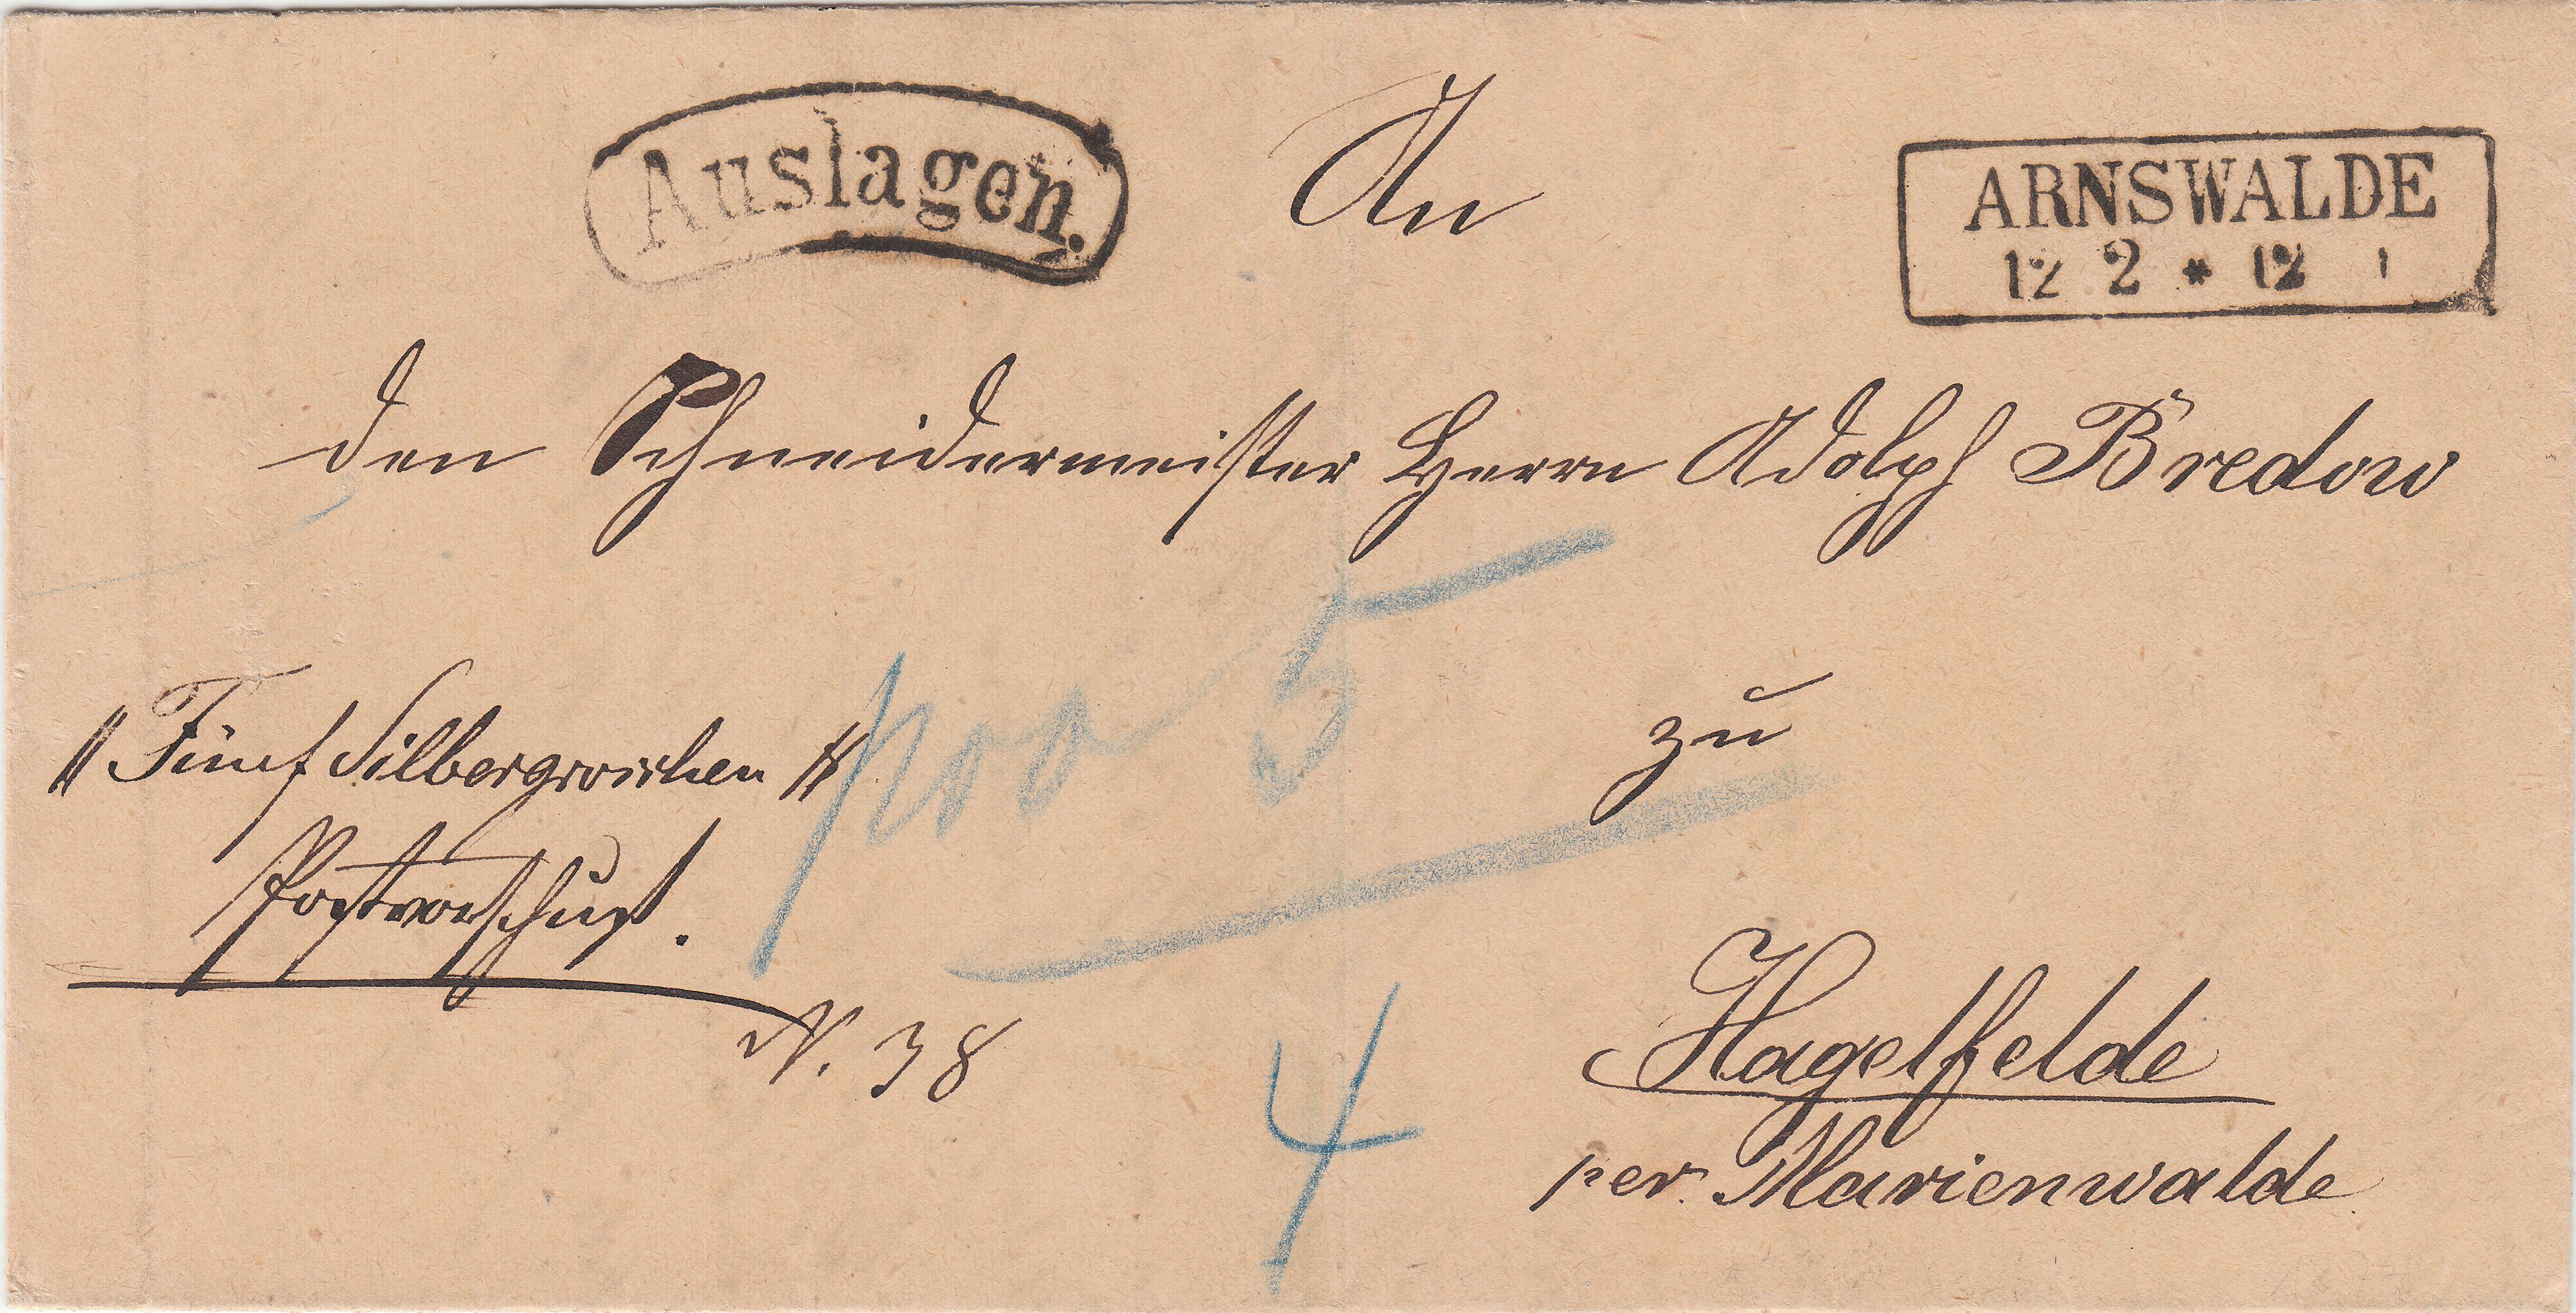 Auslagen.
An
ARNSWALDE
12 2 * 12 1
den Schneidermeister Herrn Adolph Bredow
"Fünf Silbergroschen"
Postvorschuß.
5
zu
N. 38
4
Hagelfelde
per Marienwalde